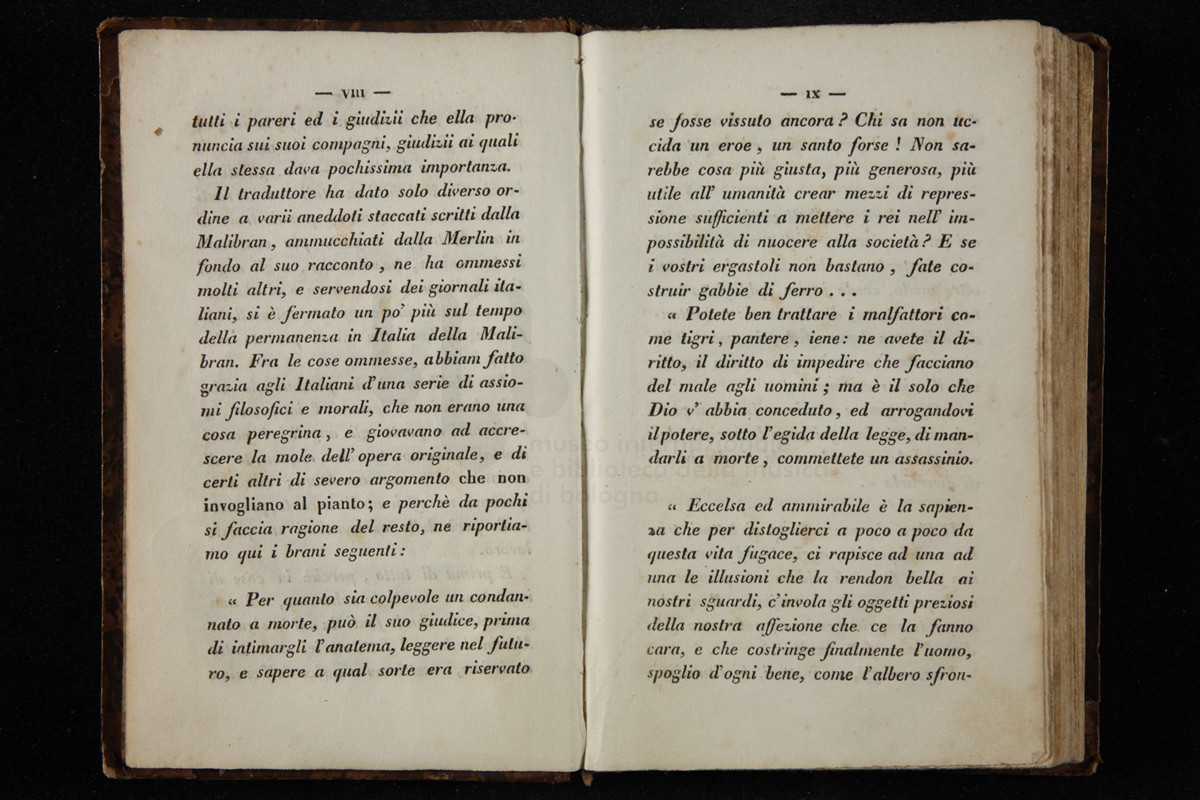 — VIII —
tutti i pareri ed i giudizii che ella pro-
nuncia sui suoi compagni, giudizii ai quali
ella stessa dava pochissima importanza.
Il traduttore ha dato solo diverso or-
dine a varii aneddoti staccati scritti dalla
Malibran, ammucchiati dalla Merlin in
fondo al suo racconto, ne ha ommessi
molti altri, e servendosi dei giornali ita-
liani, si è fermato un po' più sul tempo
della permanenza in Italia della Mali-
bran. Fra le cose ommesse, abbiam fatto
grazia agli Italiani d'una serie di assio-
mi filosofici e morali, che non erano una
cosa peregrina, e giovavano ad accre-
scere la mole dell' opera originale, e di
certi altri di severo argomento che non
invogliano al pianto; e perchè da pochi
si faccia ragione del resto, ne riportia-
mo qui i brani seguenti:
« Per quanto sia colpevole un condan-
nato a morte, può il suo giudice, prima
di intimargli l'anatema, leggere nel futu-
ro, e sapere a qual sorte era riservato
— IX —
se fosse vissuto ancora? Chi sa non uc-
cida un eroe, un santo forse! Non sa-
rebbe cosa più giusta, più generosa, più
utile all' umanità crear mezzi di repres-
sione sufficienti a mettere i rei nell' im-
possibilità di nuocere alla società? E se
i vostri ergastoli non bastano, fate co-
struir gabbie di ferro . . .
« Potete ben trattare i malfattori co-
me tigri, pantere, iene: ne avete il di-
ritto, il diritto di impedire che facciano
del male agli uomini; ma è il solo che
Dio v' abbia conceduto, ed arrogandovi
il potere, sotto l'egida della legge, di man-
darli a morte, commettete un assassinio.
« Eccelsa ed ammirabile è la sapien-
za che per distoglierci a poco a poco da
questa vita fugace, ci rapisce ad una ad
una le illusioni che la rendon bella ai
nostri sguardi, c'invola gli oggetti preziosi
della nostra affezione che ce la fanno
cara, e che costringe finalmente l'uomo,
spoglio d'ogni bene, come l'albero sfron-
museo internazionale
e biblioteca della musica
di bologna